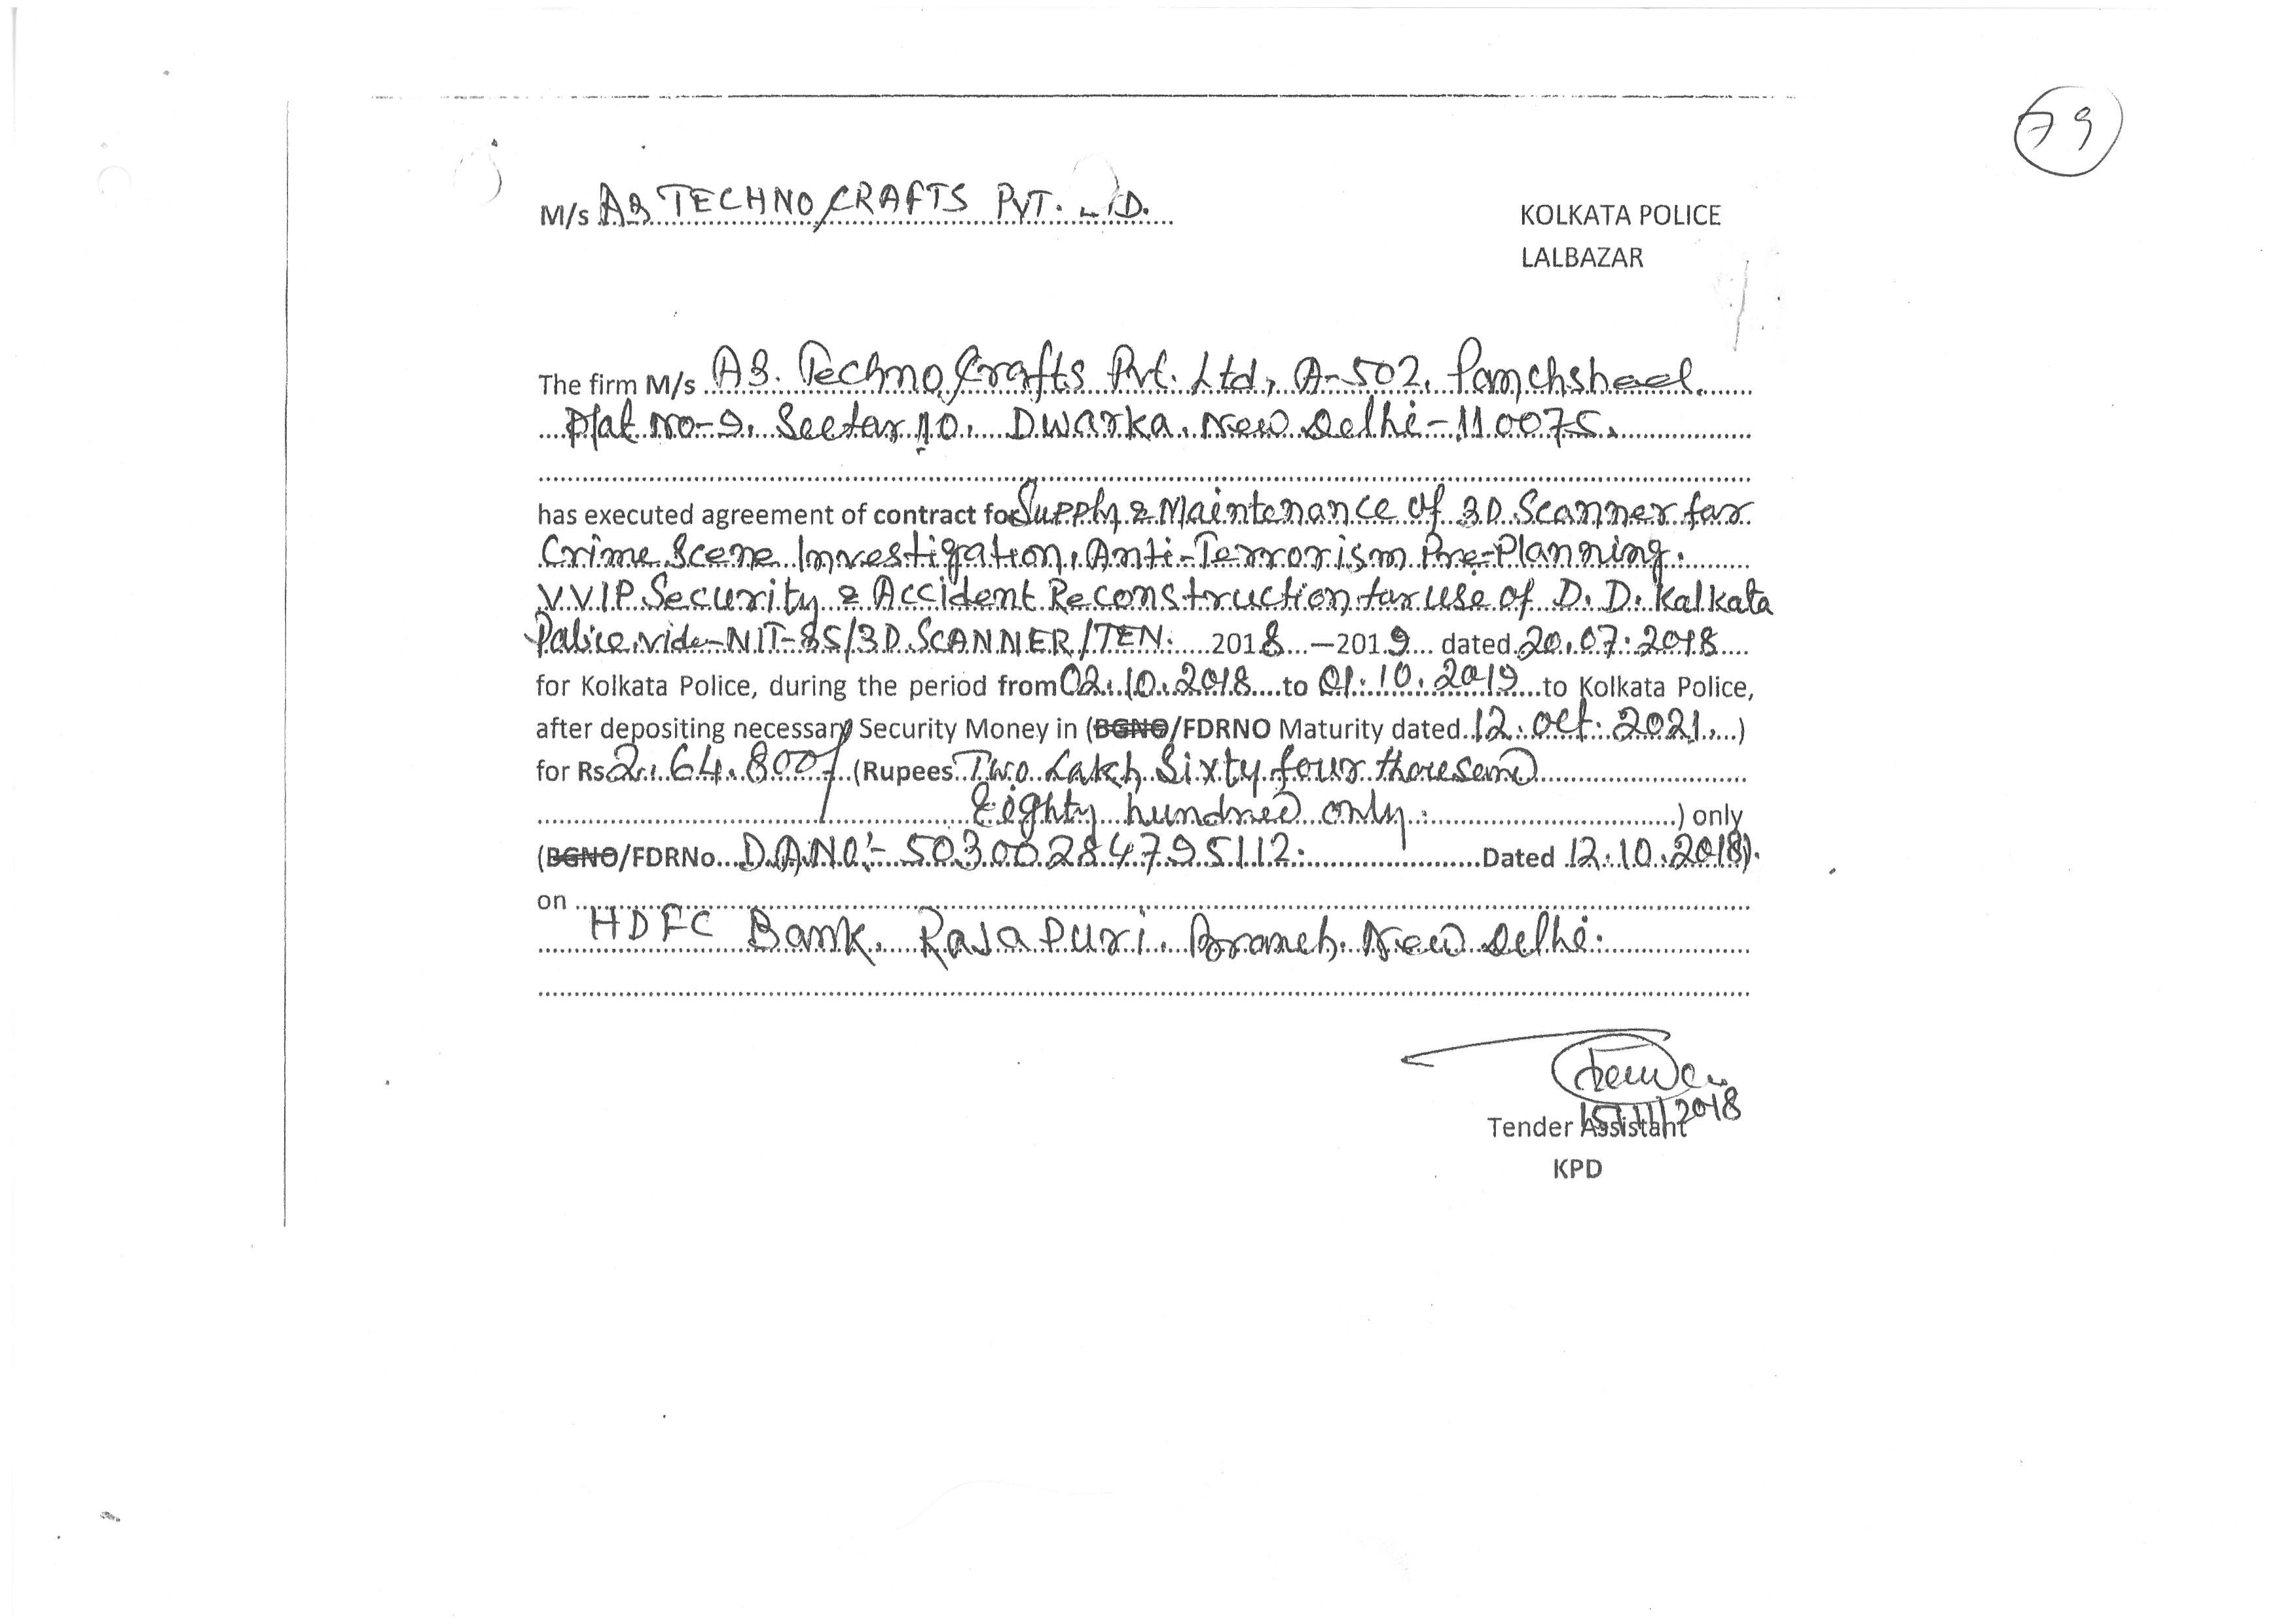 79
M/s AS TECHNOCRAFTS PVT. LTD.
KOLKATA POLICE
LALBAZAR
The firm M/s AS. Technocrafts Pvt. Ltd, A-502, Panchsheel
Plot No-9, Sector 10, Dwarka, New Delhi-110075.
has executed agreement of contract for Supply & Maintenance of 3D Scanner for
Crime Scene Investigation, Anti-Terrorism Pre-Planning.
V.V.I.P Security & Accident Reconstruction for use of D.D. Kolkata
Police vide-NIT-85/3D SCANNER/TEN. 2018 –2019 dated 20.07.2018
for Kolkata Police, during the period from 02.10.2018 to 01.10.2019 to Kolkata Police,
after depositing necessary Security Money in (BGNO/FDRNO Maturity dated 12. Oct. 2021 )
for Rs 2,64,800/- (Rupees Two Lakh Sixty four thousand
Eighty hundred only. ) only
(BGNO/FDRNo D.A.NO:- 50300284795112. Dated 12.10.2018).
on
HDFC Bank, Rajapuri, Branch, New Delhi.
15/11/2018
Tender Assistant
KPD